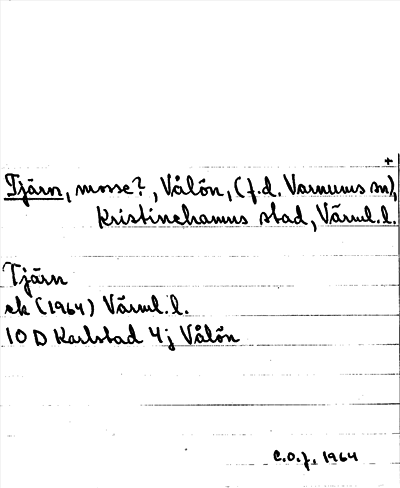 +
Tjärn, mosse?, Vålön, (f.d. Varnums sn),
Kristinehamns stad, Värml.l.
Tjärn
ek (1964) Värml.l.
10 D Karlstad 4j Vålön
C.O.J. 1964